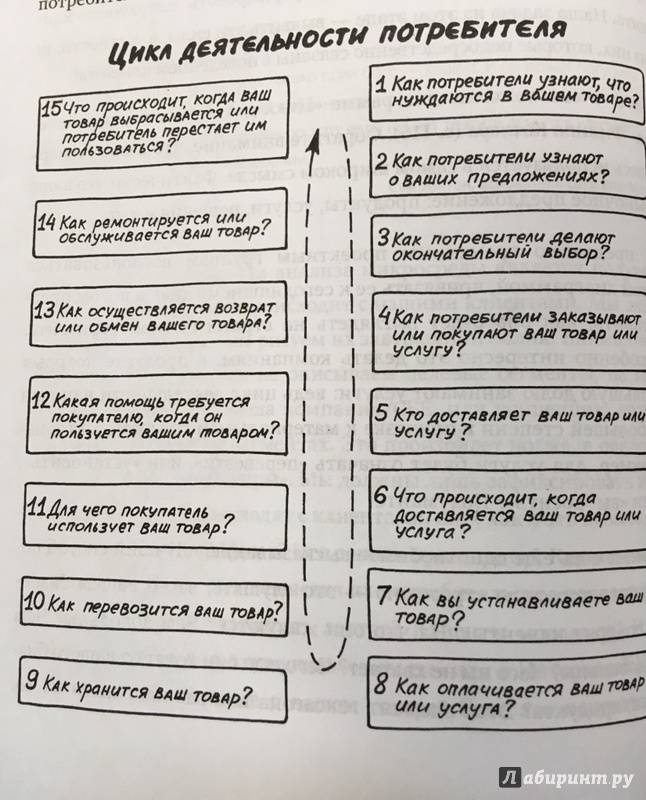 потребите
Цикл деятельности потребителя
1 Как потребители узнают, что
нуждаются в вашем товаре?
2 Как потребители узнают
о ваших предложениях?
3 Как потребители делают
окончательный выбор?
4 Как потребители заказывают
или покупают ваш товар или
услугу?
5 Кто доставляет ваш товар или
услугу?
6 Что происходит, когда
доставляется ваш товар или
услуга?
7 Как вы устанавливаете ваш
товар?
8 Как оплачивается ваш товар
или услуга?
9 Как хранится ваш товар?
10 Как перевозится ваш товар?
11 Для чего покупатель
использует ваш товар?
12 Какая помощь требуется
покупателю, когда он
пользуется вашим товаром?
13 Как осуществляется возврат
или обмен вашего товара?
14 Как ремонтируется или
обслуживается ваш товар?
15 Что происходит, когда ваш
товар выбрасывается или
потребитель перестает им
пользоваться?
Лабиринт.ру